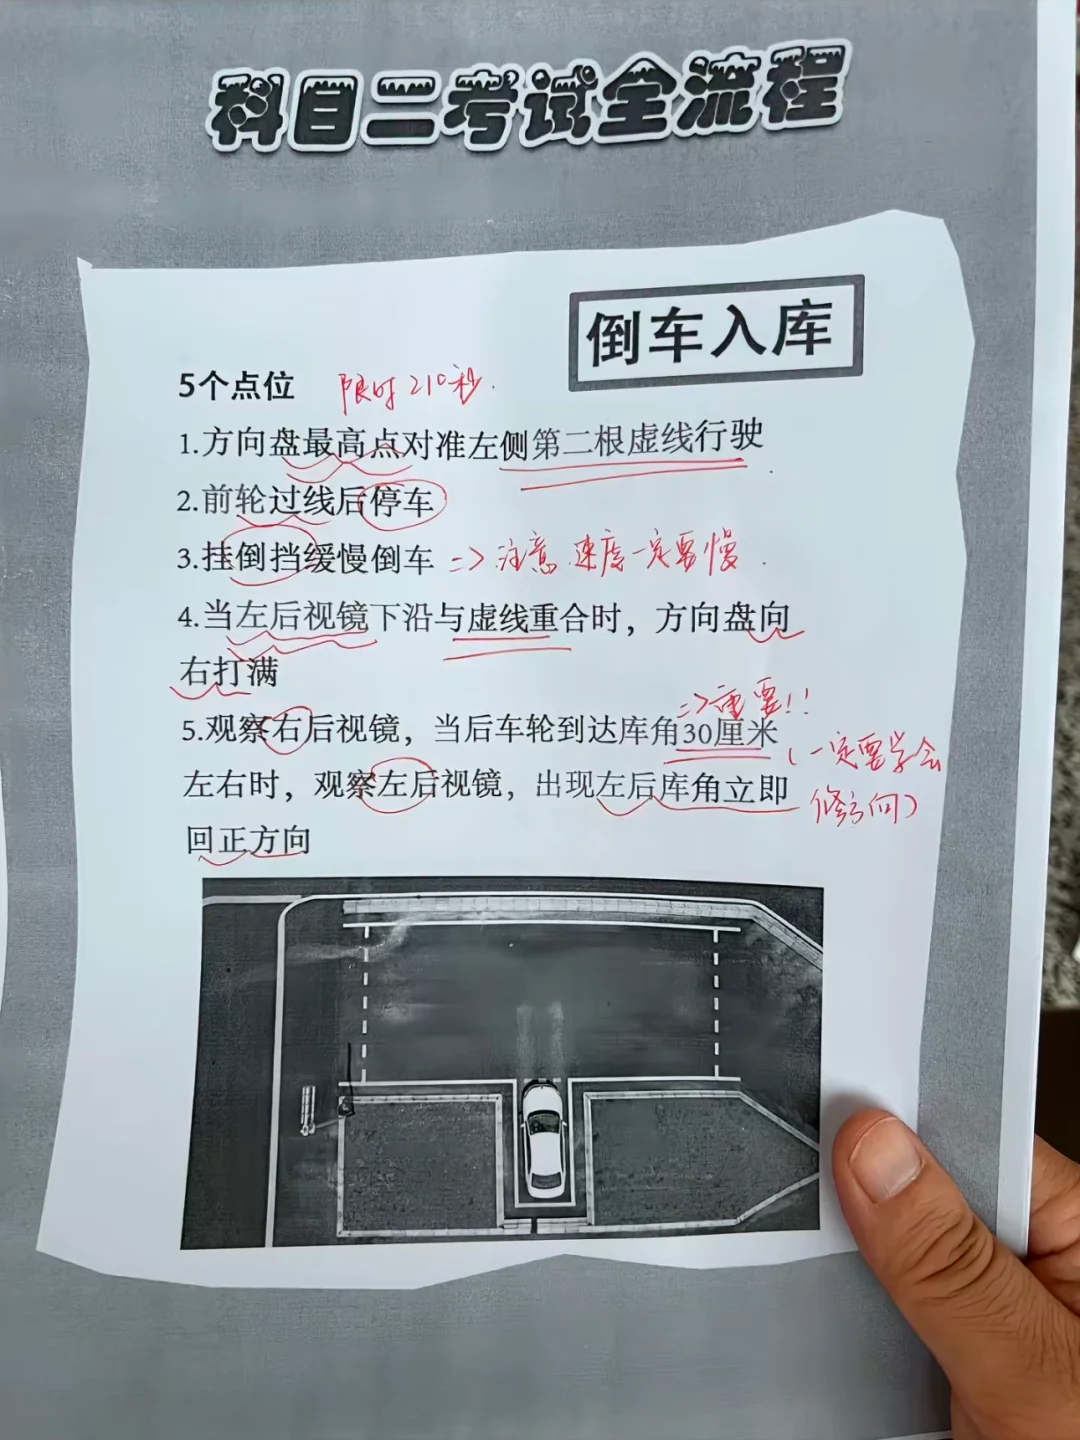 科目二考试全流程
倒车入库
5个点位 限时210秒.
1.方向盘最高点对准左侧第二根虚线行驶
2.前轮过线后停车
3.挂倒挡缓慢倒车 => 注意 速度一定要慢.
4.当左后视镜下沿与虚线重合时，方向盘向
右打满
=>重要!!
5.观察右后视镜，当后车轮到达库角30厘米
(一定要学会
左右时，观察左后视镜，出现左后库角立即
修方向)
回正方向